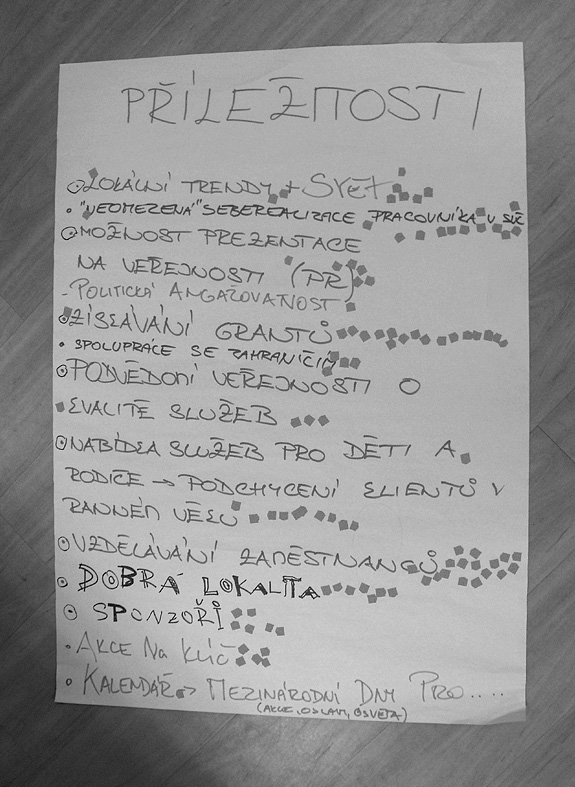 PŘÍLEŽITOSTI
LOKÁLNÍ TRENDY + SVĚT
• "NEOMEZENÁ" SEBEREALIZACE PRACOVNÍKA V SVČ
MOŽNOST PREZENTACE
NA VEŘEJNOSTI (PR)
- POLITICKÁ ANGAŽOVANOST
ZÍSKÁVÁNÍ GRANTŮ
• SPOLUPRÁCE SE ZAHRANIČÍM
PODVĚDOMÍ VEŘEJNOSTI O
KVALITĚ SLUŽEB
NABÍDKA SLUŽEB PRO DĚTI A
RODIČE → PODCHYCENÍ KLIENTŮ V
RANNÉM VĚKU
VZDĚLÁVÁNÍ ZAMĚSTNANCŮ
DOBRÁ LOKALITA
SPONZOŘI
• AKCE NA KLÍČ
• KALENDÁŘ -> MEZINÁRODNÍ DNY PRO....
(AKCE, OSLAVY, OSVĚTA)